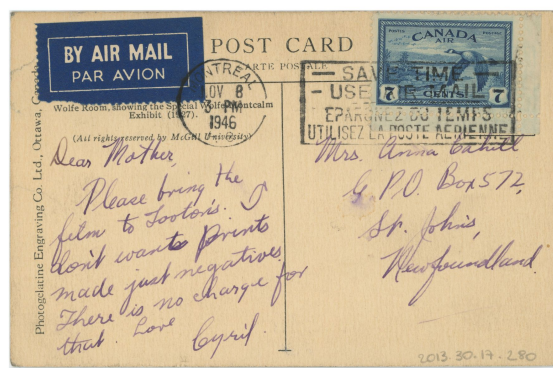 BY AIR MAIL
PAR AVION
POST CARD
CARTE POSTALE
CANADA
AIR
7 CENTS 7
MONTREAL
NOV 8
3 PM
1946
SAVE TIME
USE AIR MAIL
EPARGNEZ DU TEMPS
UTILISEZ LA POSTE AERIENNE
Wolfe Room, showing the Special Wolfe-Montcalm
Exhibit (1927).
(All rights reserved by McGill University)
Photogelatine Engraving Co. Ltd., Ottawa, Canada
Dear Mother,
Please bring the
film to Tooton's. I
don't want prints
made just negatives
There is no charge for
that. Love
Cyril.
Mrs. Anna Cahill
G.P.O. Box 572,
St. John's,
Newfoundland.
2013.30.17.280